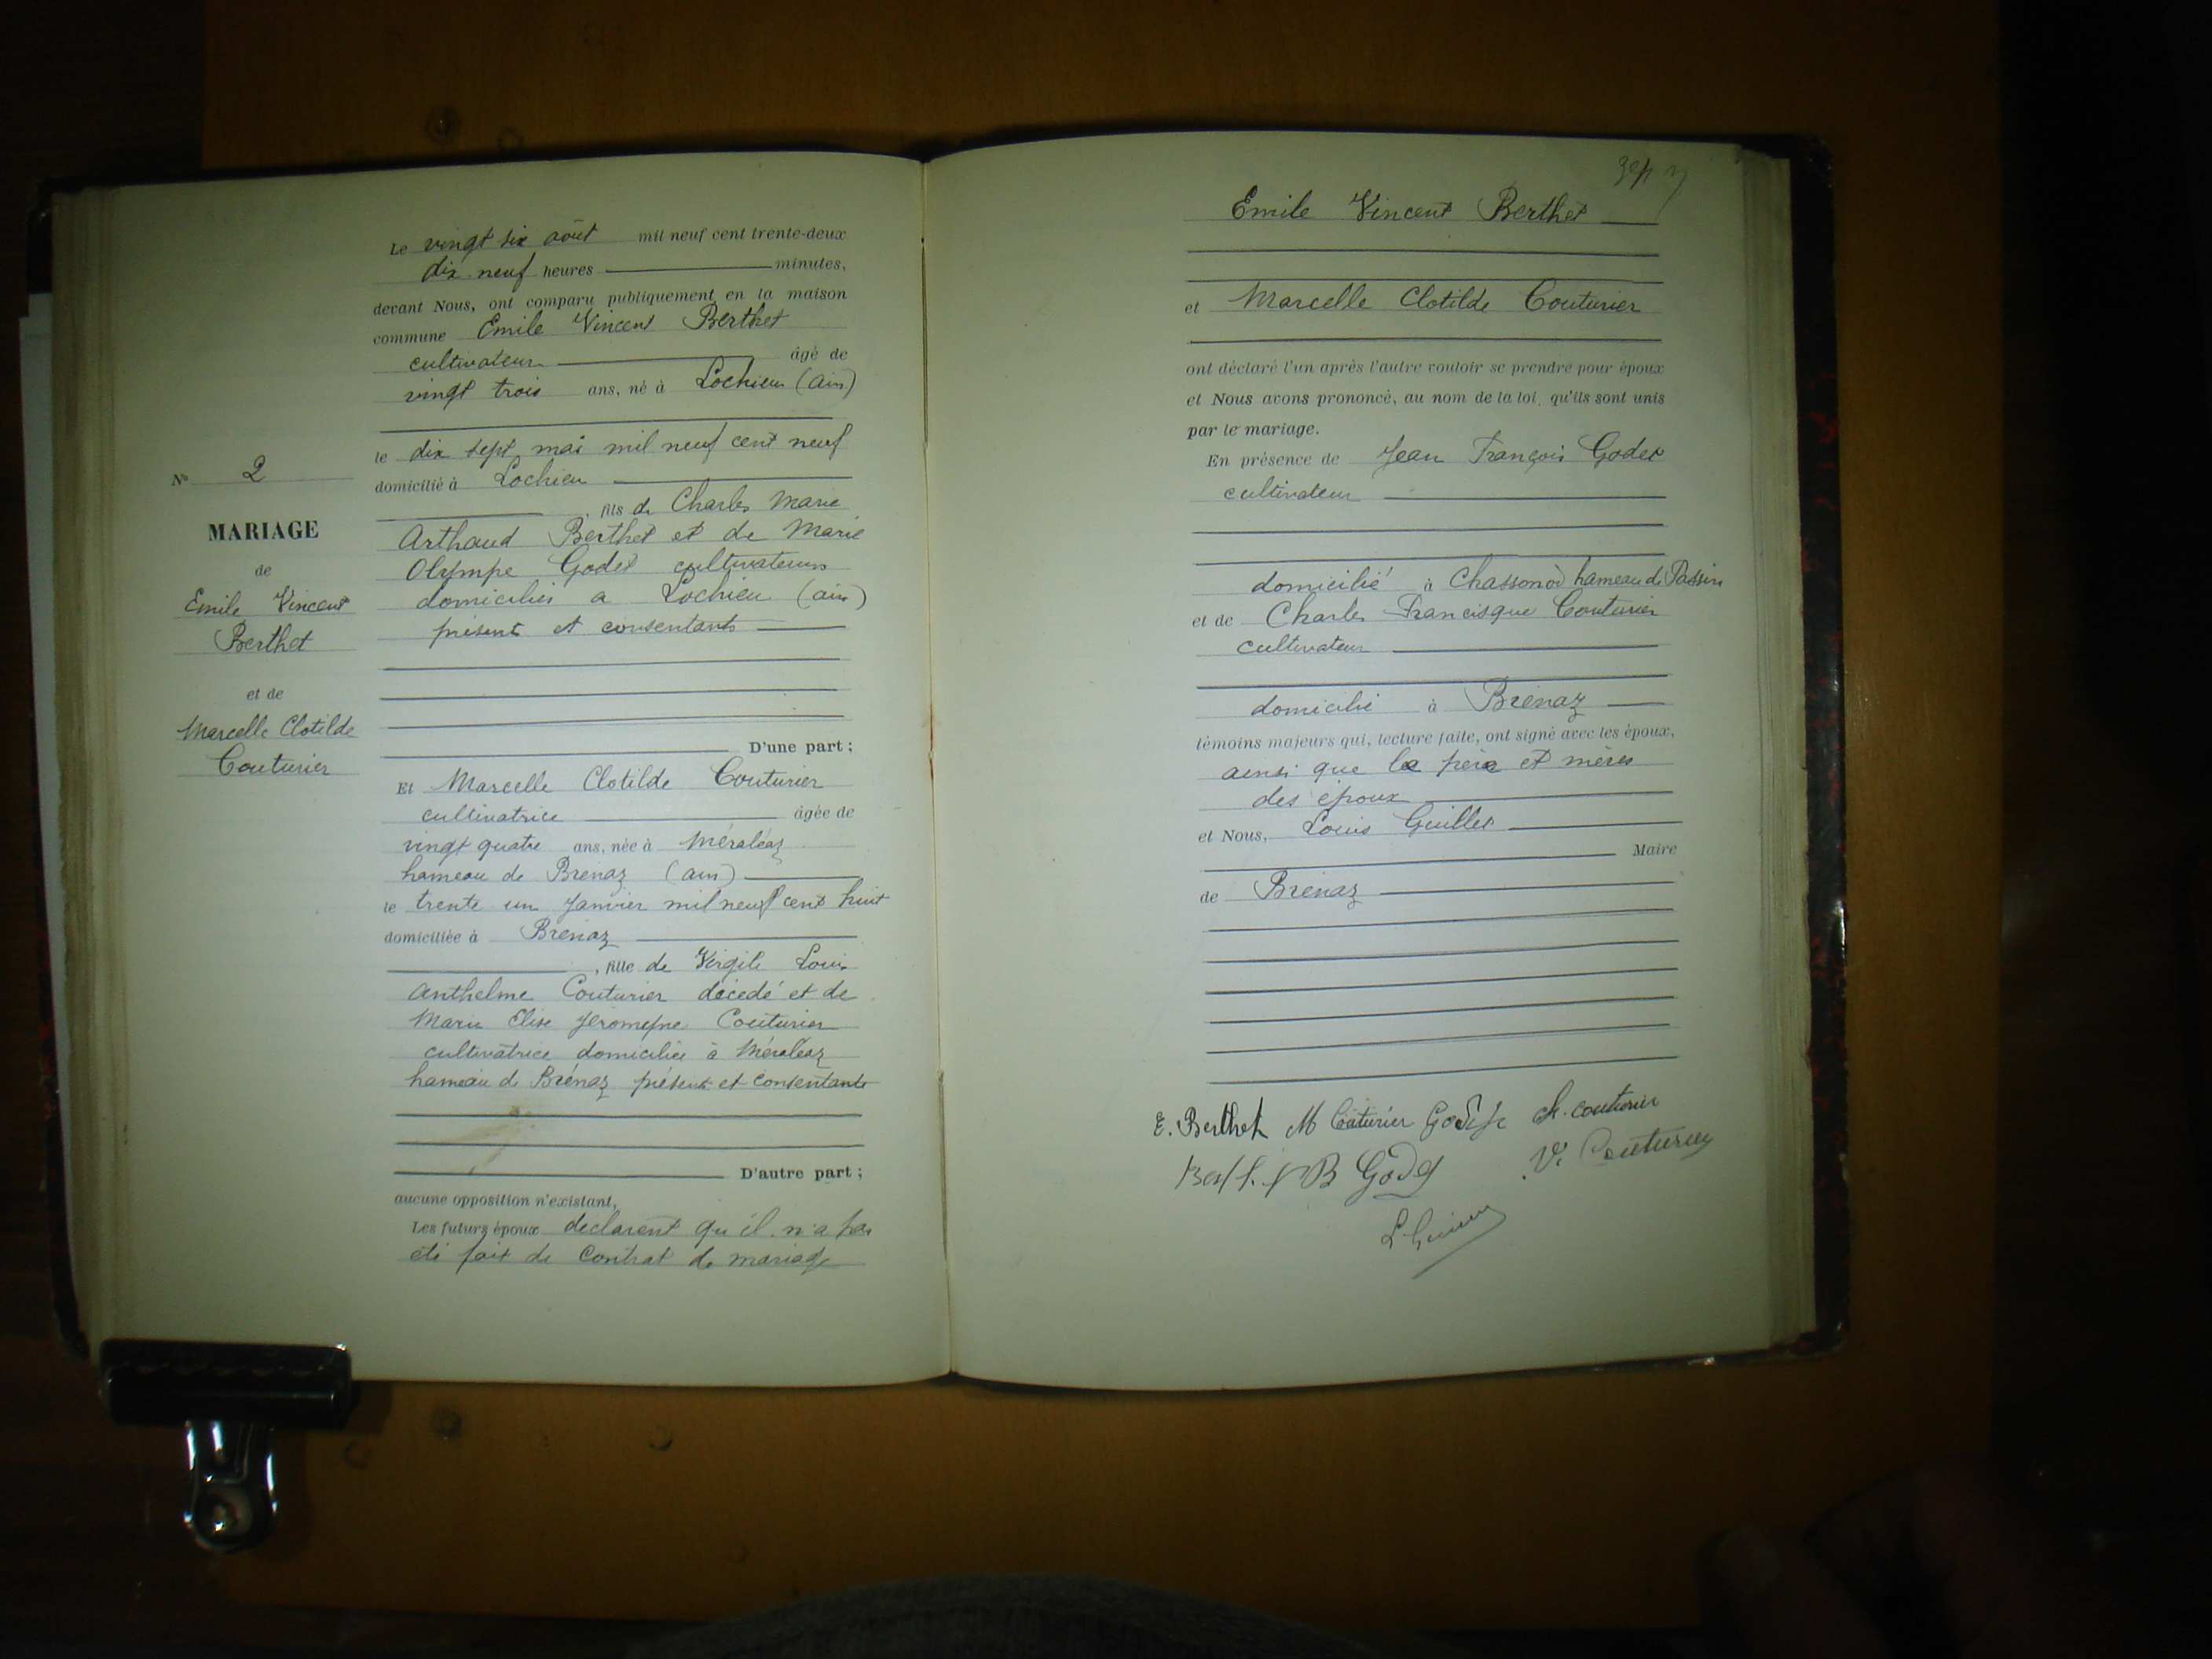 N° 2
MARIAGE
de
Emile Vincent
Berthet
et de
Marcelle Clotilde
Couturier
Le vingt six août mil neuf cent trente-deux
dix neuf heures minutes,
devant Nous, ont comparu publiquement en la maison
commune Emile Vincent Berthet
cultivateur âgé de
vingt trois ans, né à Lochieu (ain)
le dix sept mai mil neuf cent neuf
domicilié à Lochieu
, fils de Charles Marie
Arthaud Berthet et de Marie
Olympe Godet cultivateurs
domiciliés a Lochieu (ain)
présents et consentants
D'une part ;
Et Marcelle Clotilde Couturier
cultivatrice âgée de
vingt quatre ans, née à Méraléaz
hameau de Brénaz (ain)
le trente un Janvier mil neuf cent huit
domiciliée à Brénaz
, fille de Virgile Louis
Anthelme Couturier décedé et de
Marie Elise Couturier
cultivatrice domiciliée à Méraléaz
hameau de Brénaz présente et consentante
D'autre part ;
aucune opposition n'existant,
Les futurs époux declarent qu'il n'a pas
été fait de Contrat de mariage
Emile Vincent Berthet
et Marcelle Clotilde Couturier
ont déclaré l'un après l'autre vouloir se prendre pour époux
et Nous avons prononcé, au nom de la loi, qu'ils sont unis
par le mariage.
En présence de Jean François Godet
cultivateur
domicilié à hameau de Passin
et de Charles Francisque Couturier
cultivateur
domicilié à Brénaz
témoins majeurs qui, lecture faite, ont signé avec les époux,
ainsi que le père et mères
des époux
et Nous, Louis Guillet
Maire
de Brénaz
E. Berthet M Couturier Godet ch. couturier
B Godet V. Couturier